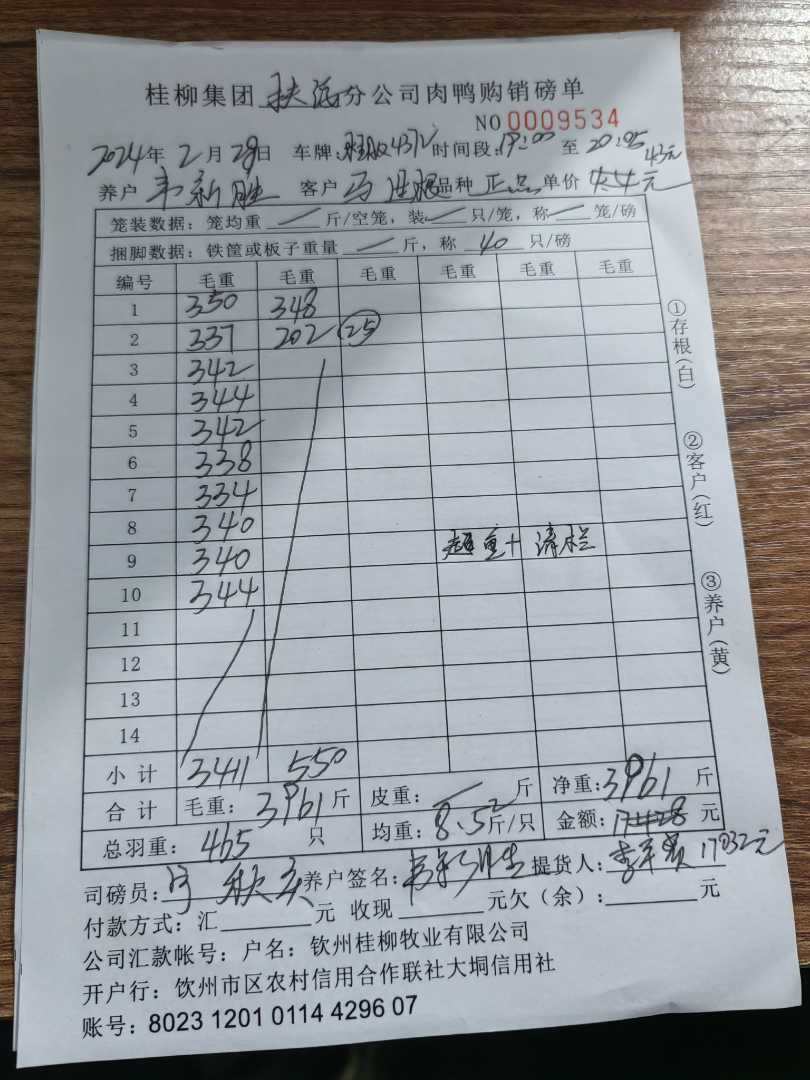 桂柳集团 扶流 分公司肉鸭购销磅单
NO 0009534
2024年 2月 29日 车牌: 4372 时间段: 19:00 至 20:05
43元
养户 韦新胜 客户 马 品种 正品 单价 4.4元
笼装数据: 笼均重 / 斤/空笼, 装 / 只/笼, 称 / 笼/磅
捆脚数据: 铁筐或板子重量 / 斤, 称 40 只/磅
编号 毛重 毛重 毛重 毛重 毛重 毛重
1 350 348
2 337 202 25
3 342
4 344
5 342
6 338
7 334
8 340
9 340 超重+清栏
10 344
11
12
13
14
小计 3411 550
合计 毛重: 3961 斤 皮重: / 斤 净重: 3961 斤
总羽重: 465 只 均重: 8.52 斤/只 金额: 17428 元
17032元
司磅员: 秋 养户签名: 提货人: 李
付款方式: 汇 元 收现 元欠(余): 元
公司汇款帐号: 户名: 钦州桂柳牧业有限公司
开户行: 钦州市区农村信用合作联社大垌信用社
账号: 8023 1201 0114 4296 07
①存根(白)
②客户(红)
③养户(黄)